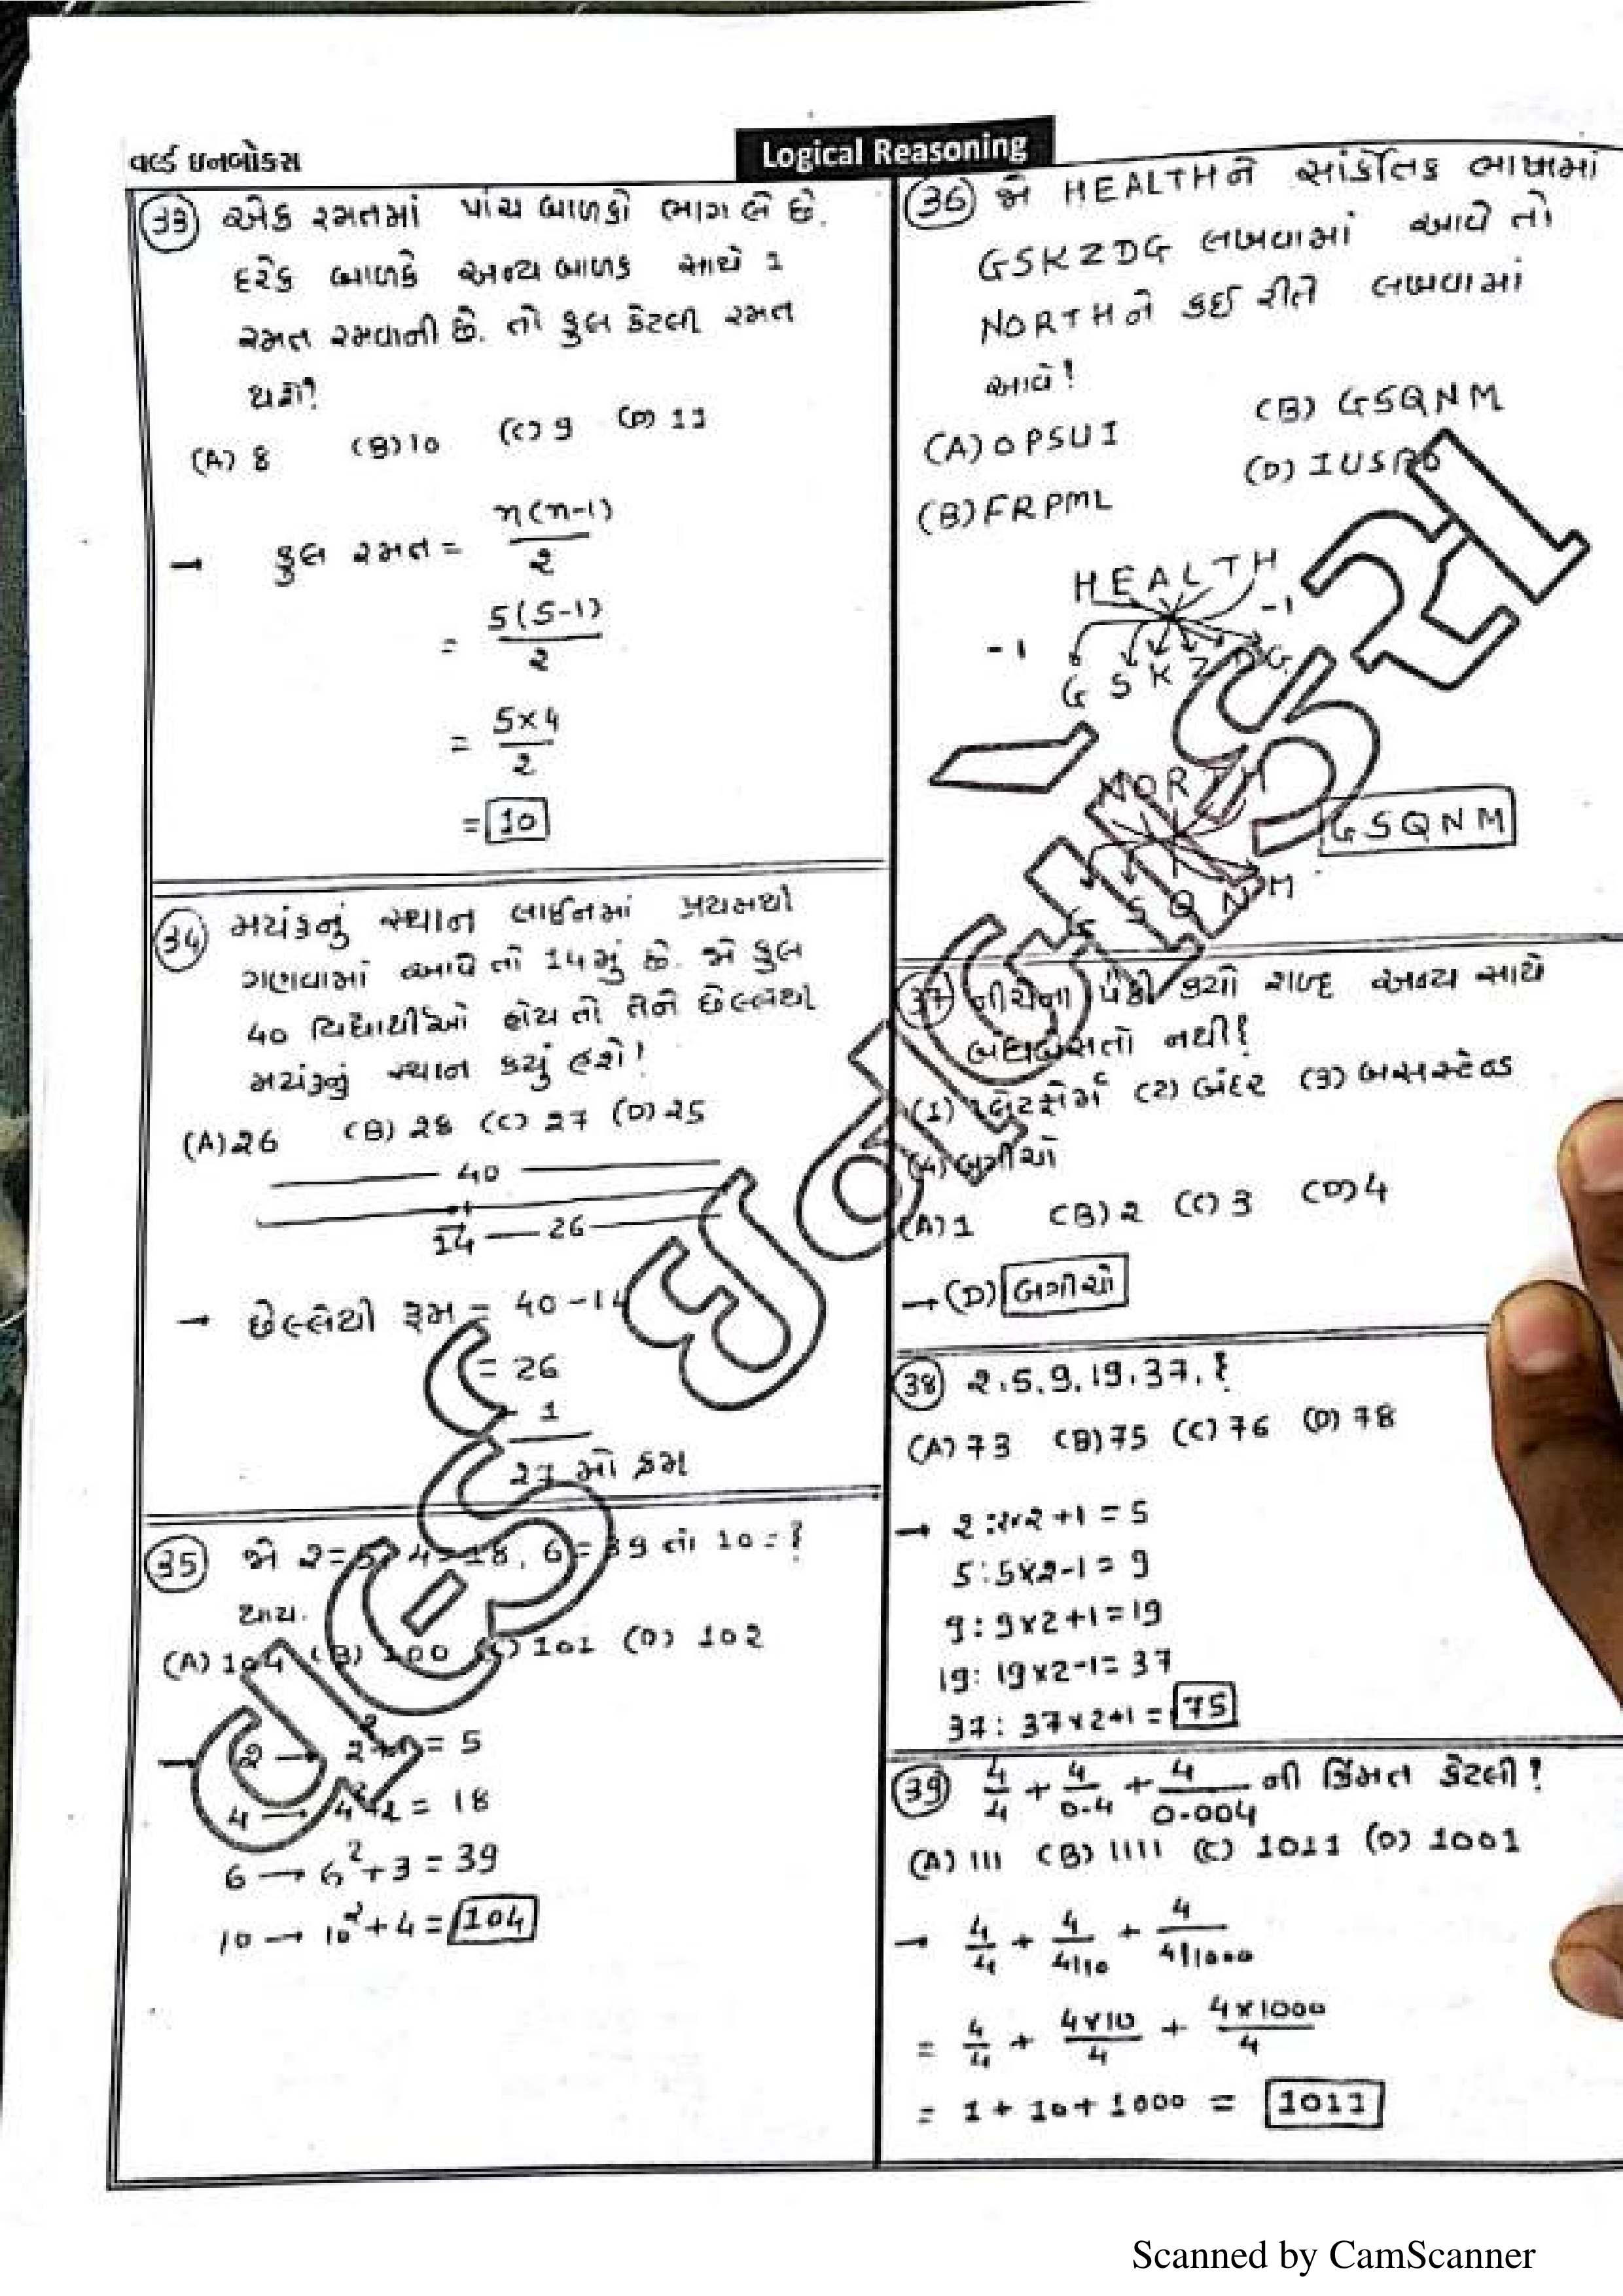 વર્લ્ડ ઇનબોક્સ
Logical Reasoning
(33) એક રમતમાં પાંચ બાળકો ભાગ લે છે.
દરેક બાળકે અન્ય બાળક સાથે 1
રમત રમવાની છે. તો કુલ કેટલી રમત
થશે?
(A) 8 (B) 10 (C) 9 (D) 11
→ કુલ રમત = n(n-1)/2
= 5(5-1)/2
= 5×4/2
= 10
(34) મયંકનું સ્થાન લાઈનમાં પ્રથમથી
ગણવામાં આવે તો 14મું છે. જો કુલ
40 વિદ્યાર્થીઓ હોય તો તેને છેલ્લેથી
મયંકનું સ્થાન કયું હશે?
(A) 26 (B) 28 (C) 27 (D) 25
40
14 — 26
→ છેલ્લેથી ક્રમ = 40 - 14
= 26
+ 1
27 મો ક્રમ
(35) જો 2 = 5, 4 = 18, 6 = 39 તો 10 = ?
થાય.
(A) 104 (B) 100 (C) 101 (D) 102
→ 2 → 2²+1 = 5
4 → 4²+2 = 18
6 → 6²+3 = 39
10 → 10²+4 = 104
(36) જો HEALTHને સાંકેતિક ભાષામાં
GSKZDG લખવામાં આવે તો
NORTHને કઈ રીતે લખવામાં
આવે?
(A) OPSUI (B) GSQNM
(B) FRPML (D) IUSPO
HEALTH
-1 -1
GSKZDG
NORTH
GSQNM
GSQNM
(37) નીચેના પૈકી કયો શબ્દ અન્ય સાથે
બંધબેસતો નથી?
(1) પ્લેટફોર્મ (2) બંદર (3) બસસ્ટેન્ડ
(4) બગીચો
(A) 1 (B) 2 (C) 3 (D) 4
→ (D) બગીચો
(38) 2, 5, 9, 19, 37, ?
(A) 73 (B) 75 (C) 76 (D) 78
→ 2 : 2×2+1 = 5
5 : 5×2-1 = 9
9 : 9×2+1 = 19
19 : 19×2-1 = 37
37 : 37×2+1 = 75
(39) 4/4 + 4/0.4 + 4/0.004 ની કિંમત કેટલી?
(A) 111 (B) 1111 (C) 1011 (D) 1001
→ 4/4 + 4/4/10 + 4/4/1000
= 4/4 + 4×10/4 + 4×1000/4
= 1 + 10 + 1000 = 1011
Scanned by CamScanner